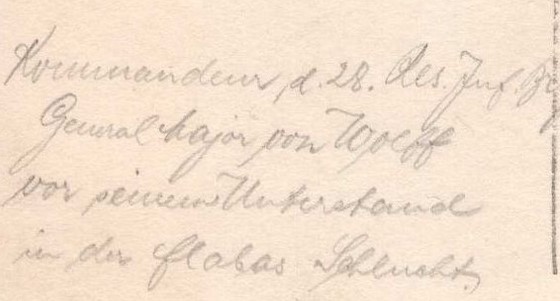 Kommandeur d. 28. Res. Inf. Br
General Major von Wolff
vor seinem Unterstand
in der flabas Schlucht.